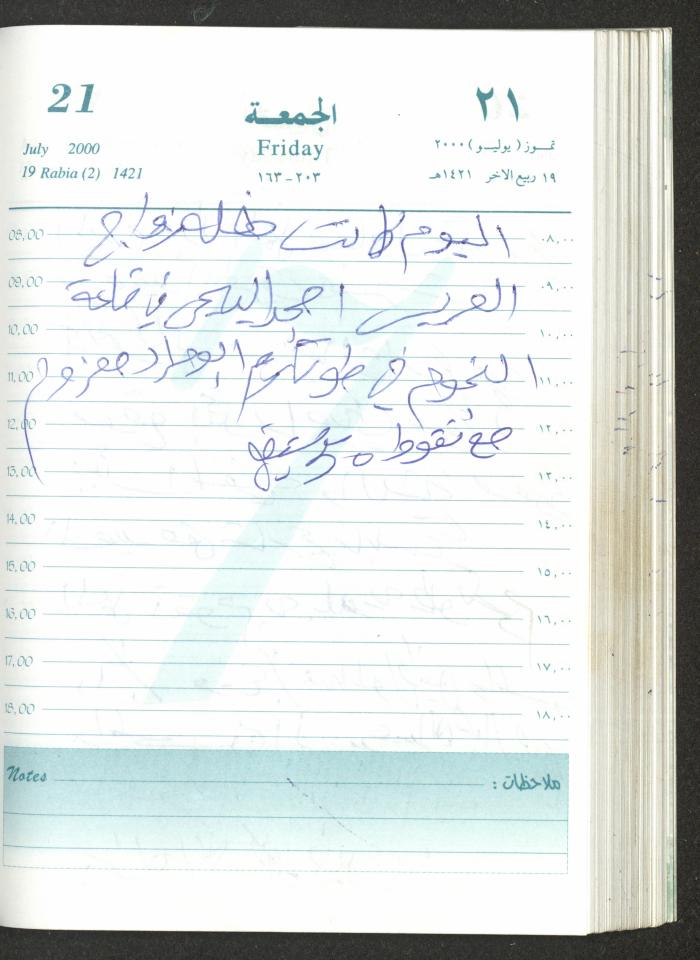 21
الجمعة
٢١
July 2000
Friday
تموز (يوليو) ٢٠٠٠
19 Rabia (2) 1421
٢٠٣-١٦٣
١٩ ربيع الاخر ١٤٢١هـ
اليوم كانت حفله زواج
08,00 ٠٨,٠٠
09,00 ٠٩,٠٠
العريس امجد في قاعة
10,00 ١٠,٠٠
النجوم في طولكرم
11,00 ١١,٠٠
12,00 ١٢,٠٠
مع نقوط
13,00 ١٣,٠٠
14,00 ١٤,٠٠
15,00 ١٥,٠٠
16,00 ١٦,٠٠
17,00 ١٧,٠٠
18,00 ١٨,٠٠
Notes ملاحظات :